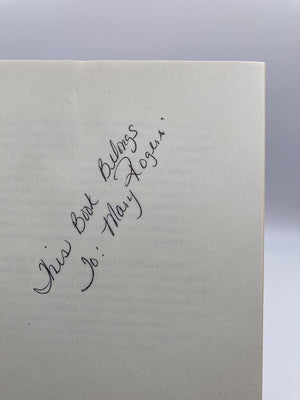 This Book Belongs
To: Mary Rogers.